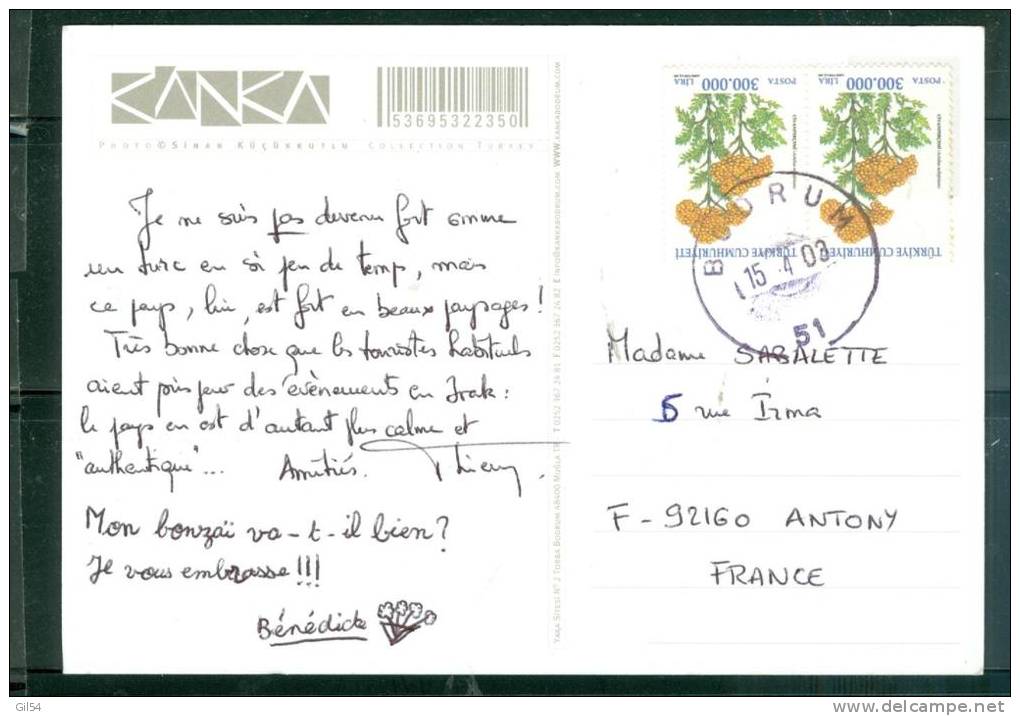 KANKA
53695322350
PHOTO©SINAN KÜÇÜKKUTLU COLLECTION TURKEY
Je ne suis pas devenu fort comme
un turc en si peu de temp, mais
ce pays, lui, est fort en beaux paysages !
Très bonne chose que les touristes habituels
aient pris peur des évènements en Irak :
le pays en est d'autant plus calme et
"authentique"... Amitiés. Thierry
Mon bonzaï va-t-il bien ?
Je vous embrasse !!!
Bénédicte
YAKA SITESI Nº 2 TORBA BODRUM 48400 MUĞLA TR T 0252 367 24 81 F 0252 367 24 82 E INFO@KANKABODRUM.COM WWW.KANKABODRUM.COM
POSTA 300.000 LİRA
TÜRKİYE CUMHURİYETİ
POSTA 300.000 LİRA
TÜRKİYE CUMHURİYETİ
BODRUM
15 4 03
51
Madame SABALETTE
5 rue Irma
F - 92160 ANTONY
FRANCE
Gil54
www.delcampe.net